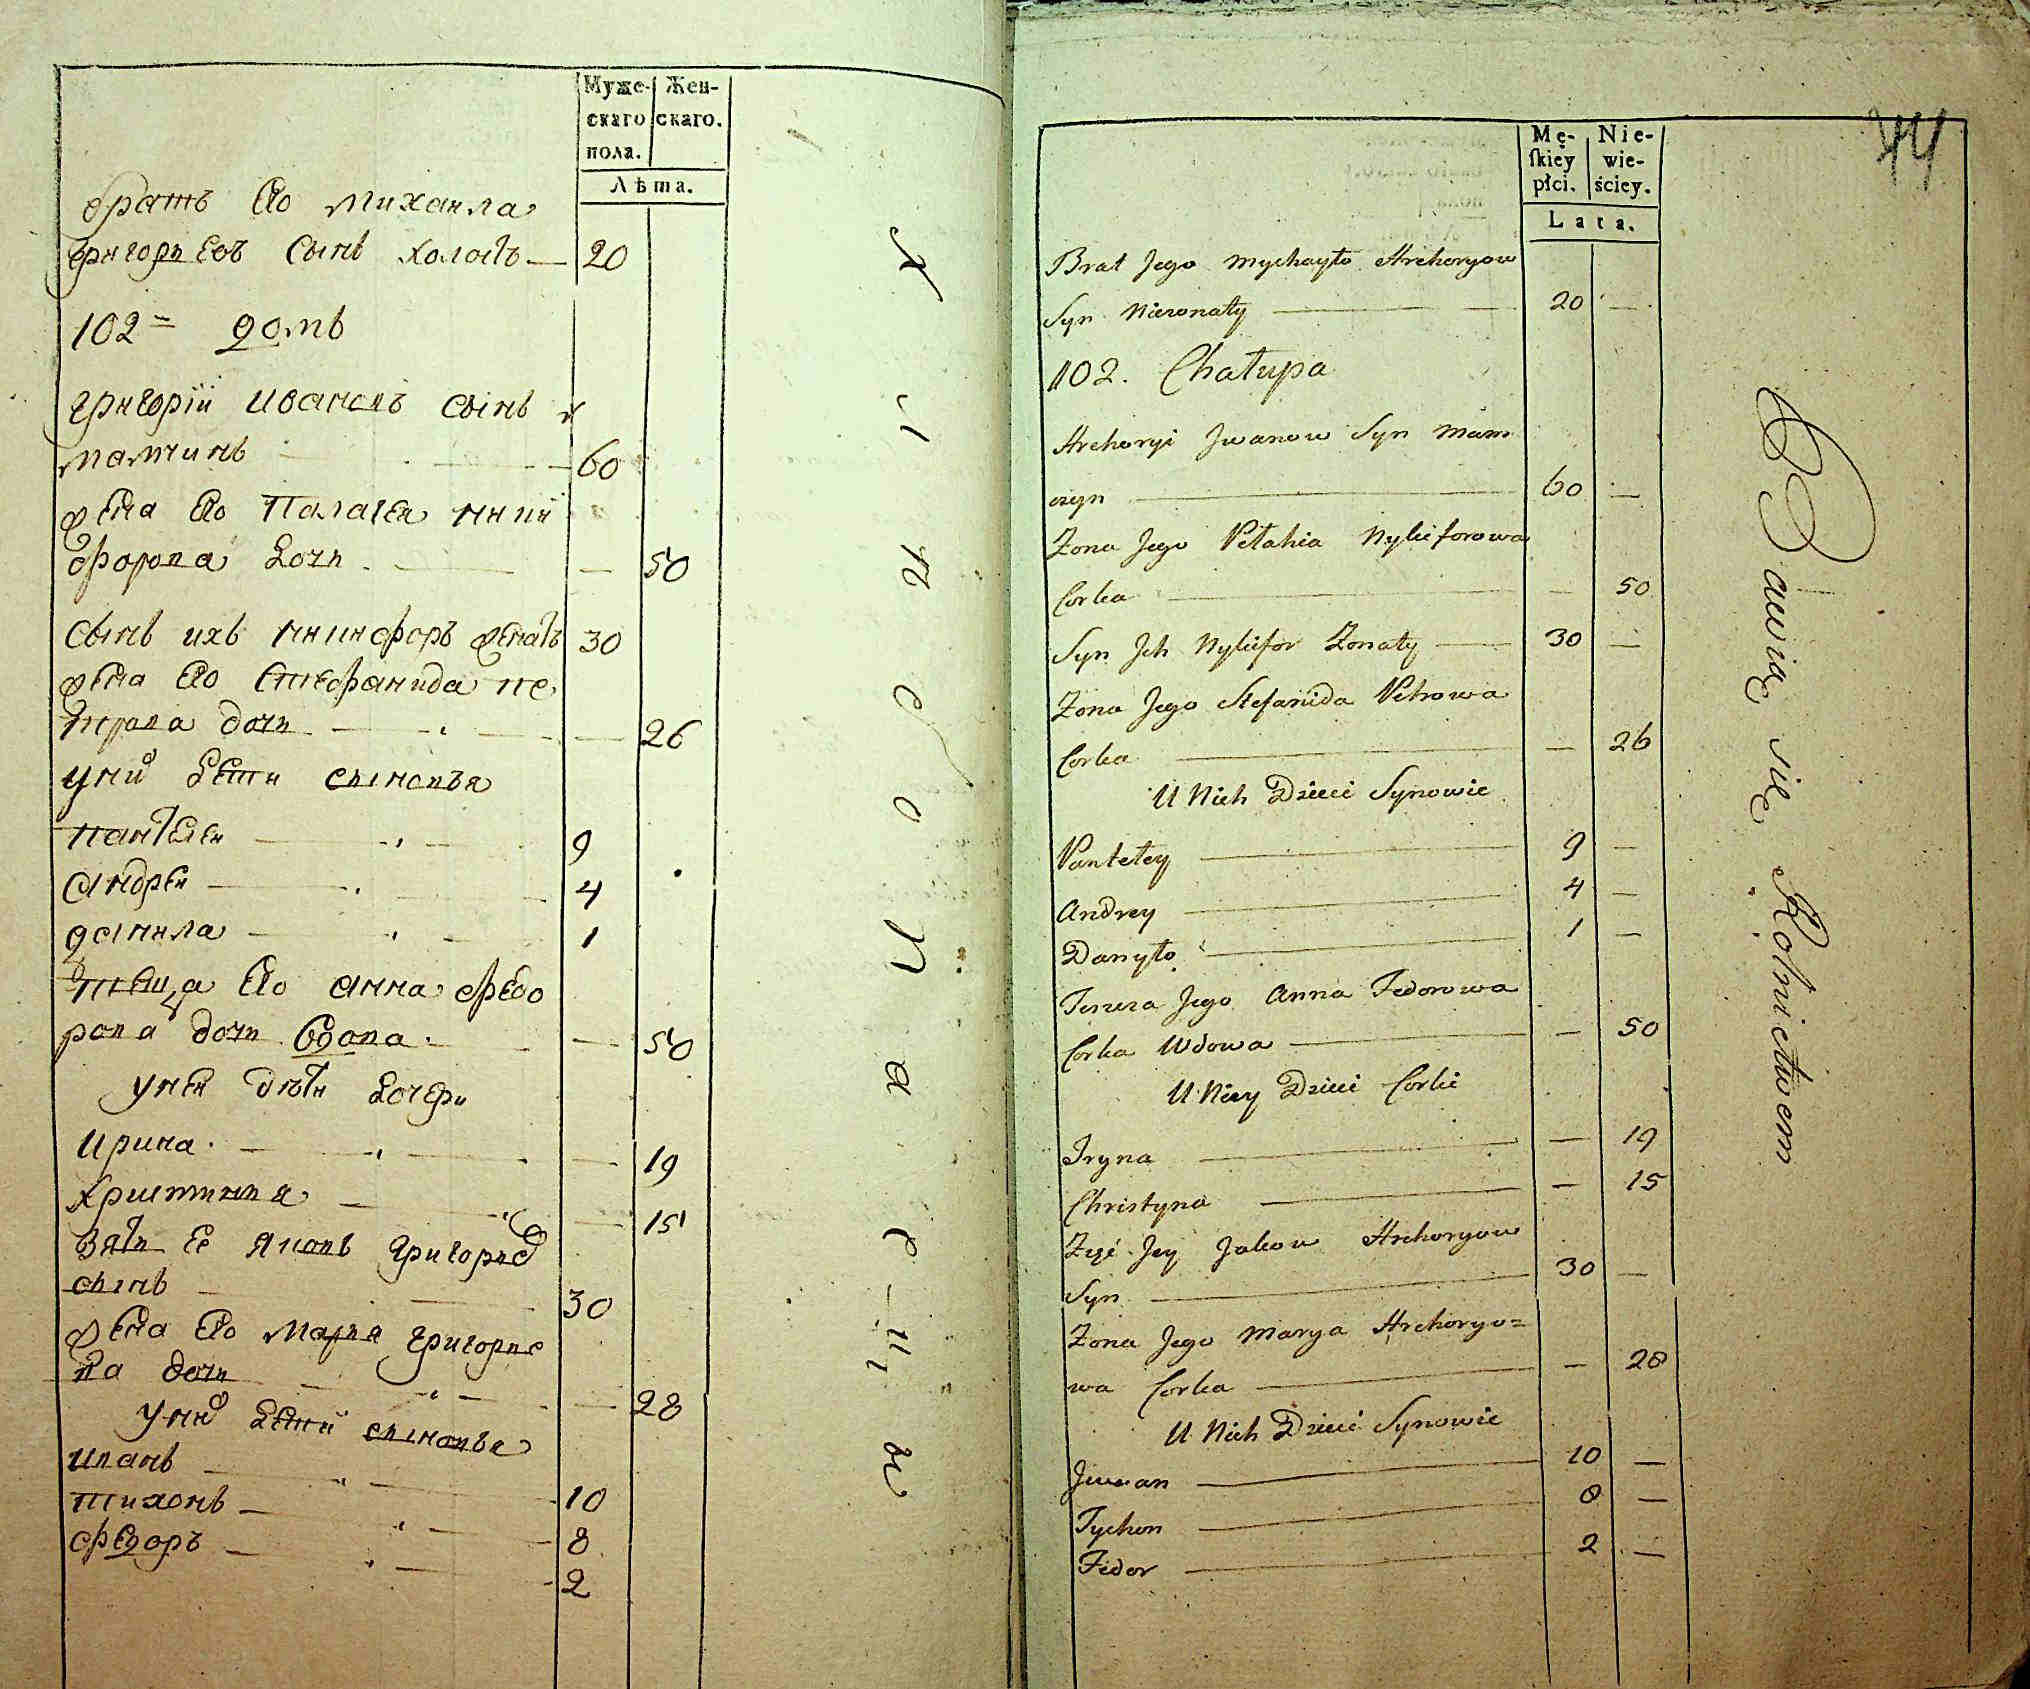 Муже-
скаго
пола.
Жен-
скаго.
Лѣта.
братъ Его михаила
григорьевъ сынъ холостъ 20
102 = домъ
григорій ивановъ сынъ
мамчинъ 60
жена Его Палагея ники
форова дочь 50
сынъ ихъ никифоръ женатъ 30
жена Его стефанида пе
трова дочь 26
у них дети сыновья
пантелеи 9
андреи 4
данила 1
теща Его анна федо
рова дочь вдова 50
у неи дети дочери
ирина 19
христиния 15
зять Ее яковъ григорьев
сынъ 30
жена Его мария григорье
ва дочь 28
у них дети сыновья
иванъ 10
тихонъ 8
федоръ 2
44
Mę-
skiey
płci.
Nie-
wie-
ściey.
Lata.
Brat Jego Mychayło Hrehoryow
Syn Nieżonaty 20
102. Chałupa
Hrehoryi Jwanow Syn Mam
czyn 60
Żona Jego Pełahia Nykiforowa
Corka 50
Syn Jch Nykifor Żonaty 30
Żona Jego Stefanida Petrowa
Corka 26
U Nich Dzieci Synowie
Pantełey 9
Andrey 4
Danyło 1
Jego Anna Fedorowa
Corka Wdowa 50
U Niey Dzieci Corki
Jryna 19
Christyna 15
Zięć Jey Jakow Hrehoryow
Syn 30
Żona Jego Marya Hrehoryo=
wa Corka 28
U Nich Dzieci Synowie
Jwan 10
Tychon 8
Fedor 2
Bawią się Rolnictwem